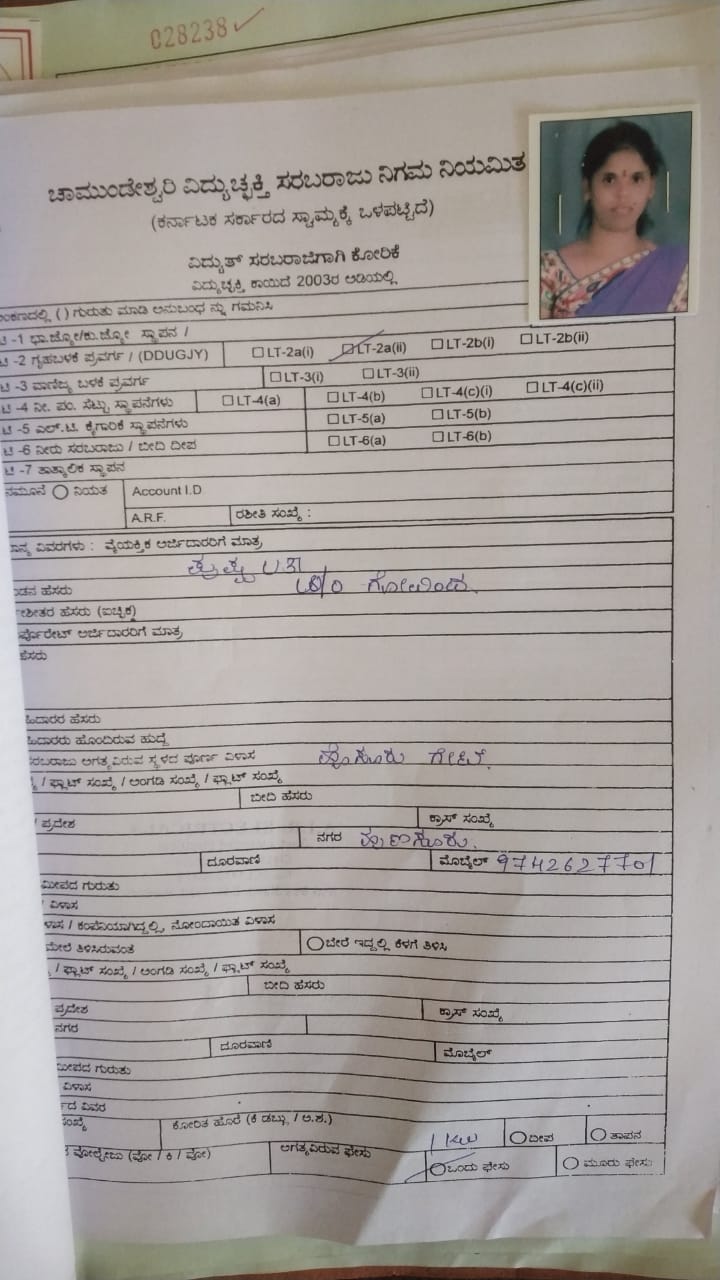 028238
ಚಾಮುಂಡೇಶ್ವರಿ ವಿದ್ಯುಚ್ಛಕ್ತಿ ಸರಬರಾಜು ನಿಗಮ ನಿಯಮಿತ
(ಕರ್ನಾಟಕ ಸರ್ಕಾರದ ಸ್ವಾಮ್ಯಕ್ಕೆ ಒಳಪಟ್ಟಿದೆ)
ವಿದ್ಯುತ್ ಸರಬರಾಜಿಗಾಗಿ ಕೋರಿಕೆ
ವಿದ್ಯುಚ್ಛಕ್ತಿ ಕಾಯಿದೆ 2003ರ ಅಡಿಯಲ್ಲಿ
ಅಂಕಣದಲ್ಲಿ ( ) ಗುರುತು ಮಾಡಿ ಅನುಬಂಧ ನ್ನು ಗಮನಿಸಿ
-1 ಭಾ.ಜ್ಯೋ/ಕು.ಜ್ಯೋ ಸ್ಥಾಪನ /
-2 ಗೃಹಬಳಕೆ ಪ್ರವರ್ಗ / (DDUGJY) LT-2a(i) LT-2a(ii) LT-2b(i) LT-2b(ii)
-3 ವಾಣಿಜ್ಯ ಬಳಕೆ ಪ್ರವರ್ಗ LT-3(i) LT-3(ii)
-4 ನೀ. ಪಂ. ಸೆಟ್ಟು ಸ್ಥಾಪನೆಗಳು LT-4(a) LT-4(b) LT-4(c)(i) LT-4(c)(ii)
-5 ಎಲ್.ಟಿ. ಕೈಗಾರಿಕೆ ಸ್ಥಾಪನೆಗಳು LT-5(a) LT-5(b)
-6 ನೀರು ಸರಬರಾಜು / ಬೀದಿ ದೀಪ LT-6(a) LT-6(b)
-7 ತಾತ್ಕಾಲಿಕ ಸ್ಥಾಪನ
ನಮೂನೆ ನಿಯತ Account I.D
A.R.F. ರಶೀತಿ ಸಂಖ್ಯೆ :
ವಿವರಗಳು : ವೈಯಕ್ತಿಕ ಅರ್ಜಿದಾರರಿಗೆ ಮಾತ್ರ
W/O ಗೋವಿಂದ.
ಹೆಸರು
ಹೆಸರು (ಐಚ್ಛಿಕ)
ಅರ್ಜಿದಾರರಿಗೆ ಮಾತ್ರ
ಹೆಸರು
ಹೆಸರು
ಹೊಂದಿರುವ ಹುದ್ದೆ
ಸರಬರಾಜು ಅಗತ್ಯವಿರುವ ಸ್ಥಳದ ಪೂರ್ಣ ವಿಳಾಸ
/ ಫ್ಲಾಟ್ ಸಂಖ್ಯೆ / ಅಂಗಡಿ ಸಂಖ್ಯೆ / ಫ್ಲಾಟ್ ಸಂಖ್ಯೆ
ಬೀದಿ ಹೆಸರು
/ ಪ್ರದೇಶ ಕ್ರಾಸ್ ಸಂಖ್ಯೆ
ನಗರ ಹುಣಸೂರು.
ದೂರವಾಣಿ ಮೊಬೈಲ್ 9742627701
ಗುರುತು
ವಿಳಾಸ
/ ಕಂಪನಿಯಾಗಿದ್ದಲ್ಲಿ, ನೋಂದಾಯಿತ ವಿಳಾಸ
ಮೇಲೆ ತಿಳಿಸಿರುವಂತೆ ಬೇರೆ ಇದ್ದಲ್ಲಿ ಕೆಳಗೆ ತಿಳಿಸಿ
/ ಫ್ಲಾಟ್ ಸಂಖ್ಯೆ / ಅಂಗಡಿ ಸಂಖ್ಯೆ / ಫ್ಲಾಟ್ ಸಂಖ್ಯೆ
ಬೀದಿ ಹೆಸರು
ಪ್ರದೇಶ ಕ್ರಾಸ್ ಸಂಖ್ಯೆ
ನಗರ
ದೂರವಾಣಿ ಮೊಬೈಲ್
ಗುರುತು
ವಿಳಾಸ
ವಿವರ
ಕೋರಿತ ಹೊರೆ (ಕಿ ಡಬ್ಲು / ಅ.ಶ.) 1 KW ದೀಪ ತಾಪನ
ವೋಲ್ಟೇಜು (ವೋ / ಕಿ / ವೋ) ಅಗತ್ಯವಿರುವ ಫೇಸು ಒಂದು ಫೇಸು ಮೂರು ಫೇಸು